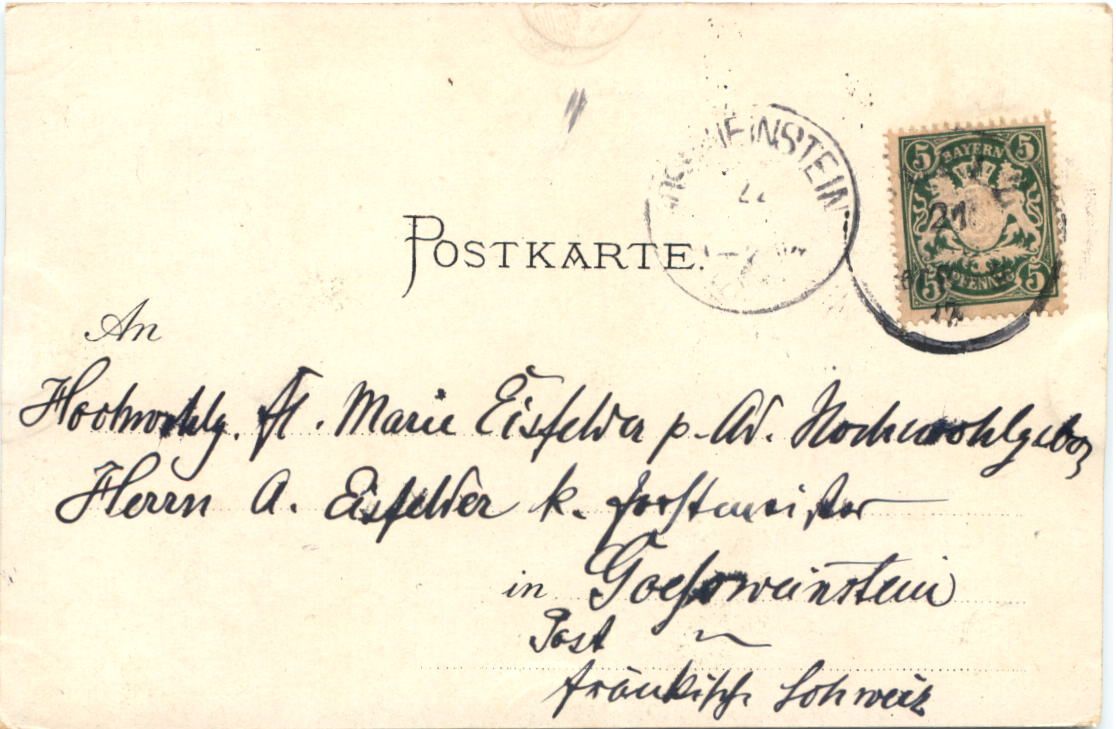 POSTKARTE.
EINSTEIN
5 BAYERN 5
5 PFENNIG 5
An
Hochwohlg. Frl. Marie Eisfelder p. Ad. Hochwohlgebor
Herrn A. Eisfelder k. Forstmeister
in Goessweinstein
Post ~
fränkische Schweiz